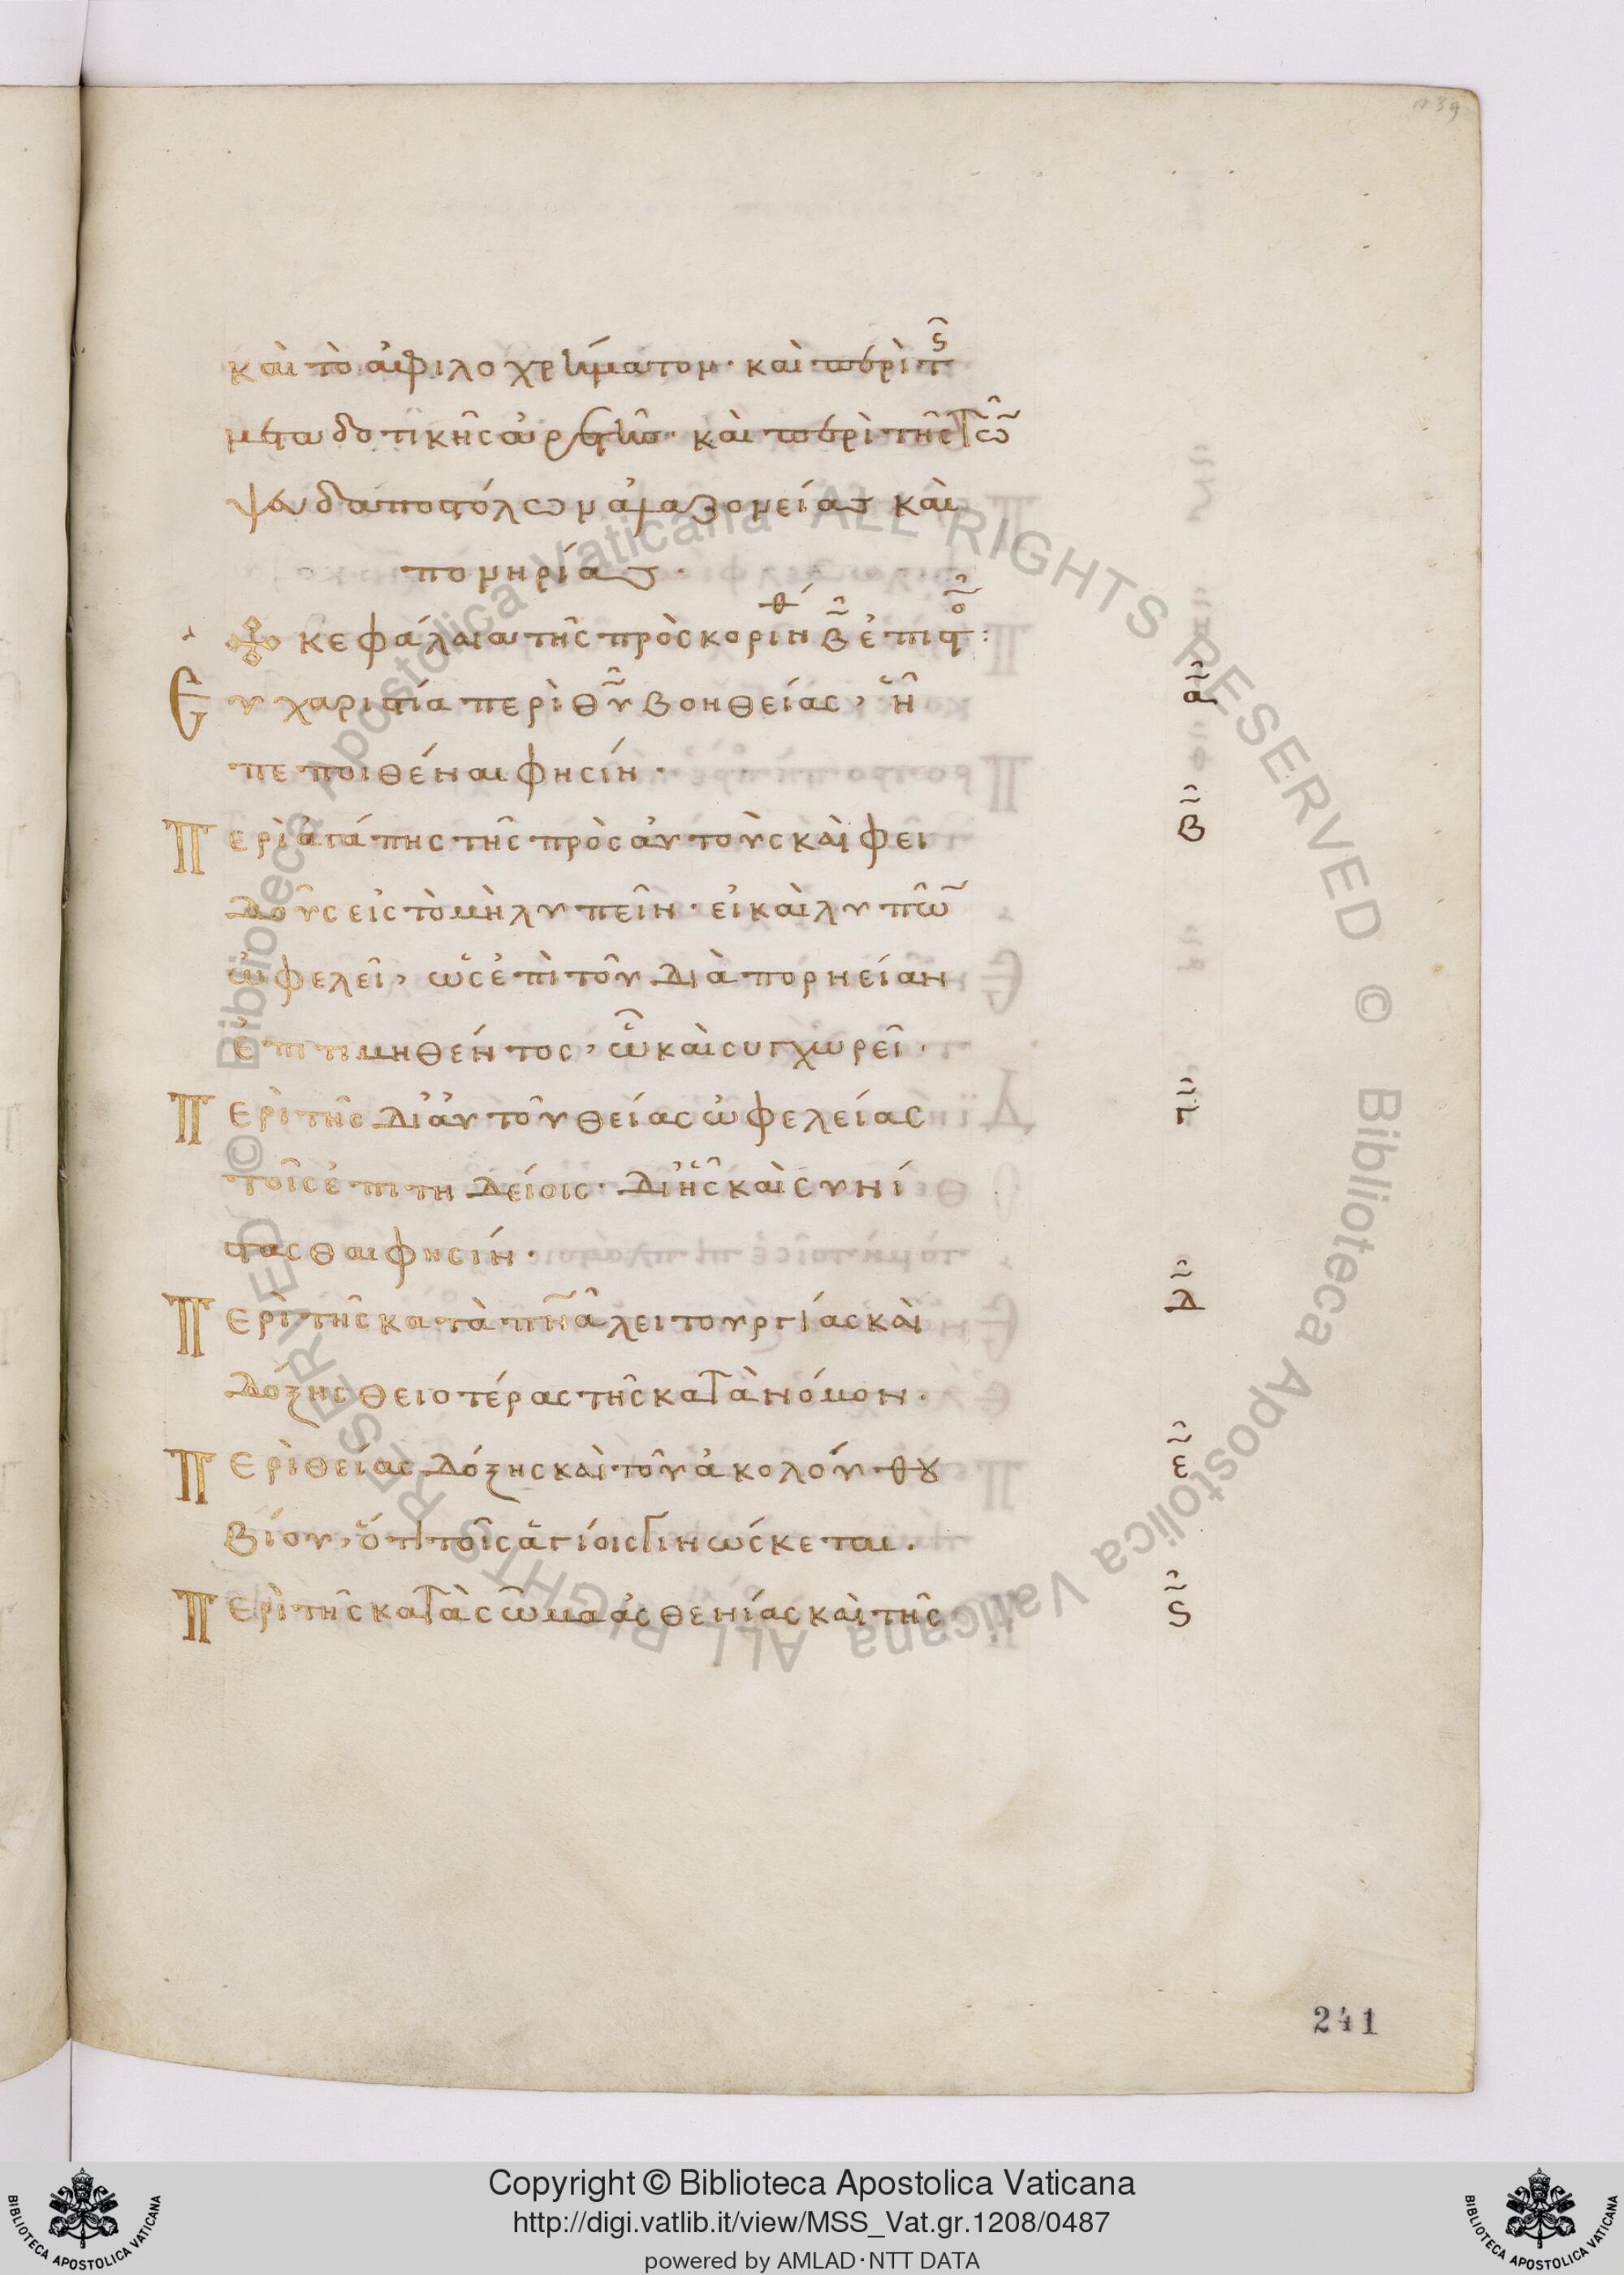 239
καὶ τὸ ἀφιλοχρήματον· καὶ περὶ τῆς
μεταδοτικῆς ἀρετῆς· καὶ περὶ τῆς τῶν
ψευδαποστόλων ἀλαζονείας καὶ
πονηρίας·
κεφάλαια τῆς πρὸς κορινθ β̃ ἐπιστο:
Εὐχαριστία περὶ θυ βοηθείας, ἧ α̃
πεποιθέναι φησίν·
Περὶ ἀγάπης τῆς πρὸς αὐτοὺς καὶ φει β̃
δοῦς εἰς τὸ μὴ λυπεῖν· εἰ καὶ λυπῶν
ὠφελεῖ, ὡς ἐπὶ τοῦ διὰ πορνείαν
ἐπιτιμηθέντος, ὧ καὶ συγχωρεῖ·
Περὶ τῆς δι' αὐτοῦ θείας ὠφελείας γ̃
τοῖς ἐπιτηδείοις· δι' ἧς καὶ συνί
στασθαι φησίν·
Περὶ τῆς κατὰ πνᾶ λειτουργίας καὶ δ̃
δόξης θειοτέρας τῆς κατὰ νόμον·
Περὶ θείας δόξης καὶ τοῦ ἀκολούθου ε̃
βίου, ὅτι τοῖς ἁγίοις γινώσκεται.
Περὶ τῆς κατὰ σῶμα ἀσθενίας καὶ τῆς ς̃
241
© Biblioteca Apostolica Vaticana ALL RIGHTS RESERVED © Biblioteca Apostolica Vaticana ALL RIGHTS RESERVED
Copyright © Biblioteca Apostolica Vaticana
http://digi.vatlib.it/view/MSS_Vat.gr.1208/0487
powered by AMLAD·NTT DATA
BIBLIOTECA APOSTOLICA VATICANA
BIBLIOTECA APOSTOLICA VATICANA